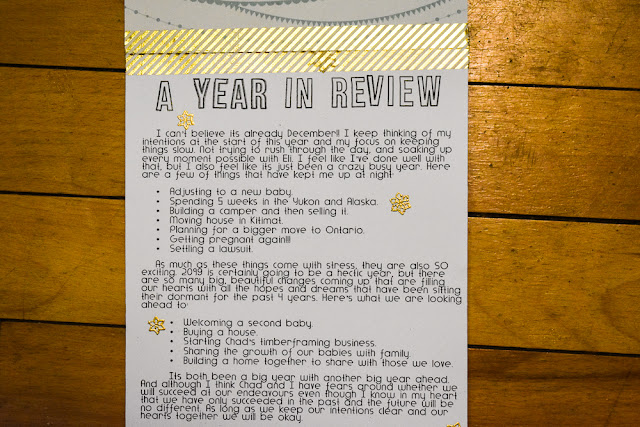 A YEAR IN REVIEW
I can't believe its already December!! I keep thinking of my
intentions at the start of this year and my focus on keeping
things slow. Not trying to rush through the day, and soaking up
every moment possible with Eli. I feel like I've done well with
that, but I also feel like its just been a crazy busy year. Here
are a few of things that have kept me up at night:
• Adjusting to a new baby.
• Spending 5 weeks in the Yukon and Alaska.
• Building a camper and then selling it.
• Moving house in Kitimat.
• Planning for a bigger move to Ontario.
• Getting pregnant again!!!
• Settling a lawsuit.
As much as these things come with stress, they are also SO
exciting. 2019 is certainly going to be a hectic year, but there
are so many big, beautiful changes coming up that are filling
our hearts with all the hopes and dreams that have been sitting
their dormant for the past 4 years. Here's what we are looking
ahead to:
• Welcoming a second baby.
• Buying a house.
• Starting Chad's timberframing business.
• Sharing the growth of our babies with family.
• Building a home together to share with those we love.
Its both been a big year with another big year ahead.
And although I think Chad and I have fears around whether we
will succeed at our endeavours even though I know in my heart
that we have only succeeded in the past and the future will be
no different. As long as we keep our intentions clear and our
hearts together we will be okay.